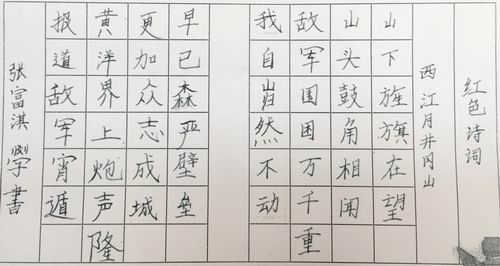 红色诗词
西江月井冈山
山下旌旗在望
山头鼓角相闻
敌军围困万千重
我自岿然不动
早已森严壁垒
更加众志成城
黄洋界上炮声隆
报道敌军宵遁
张富淇學書